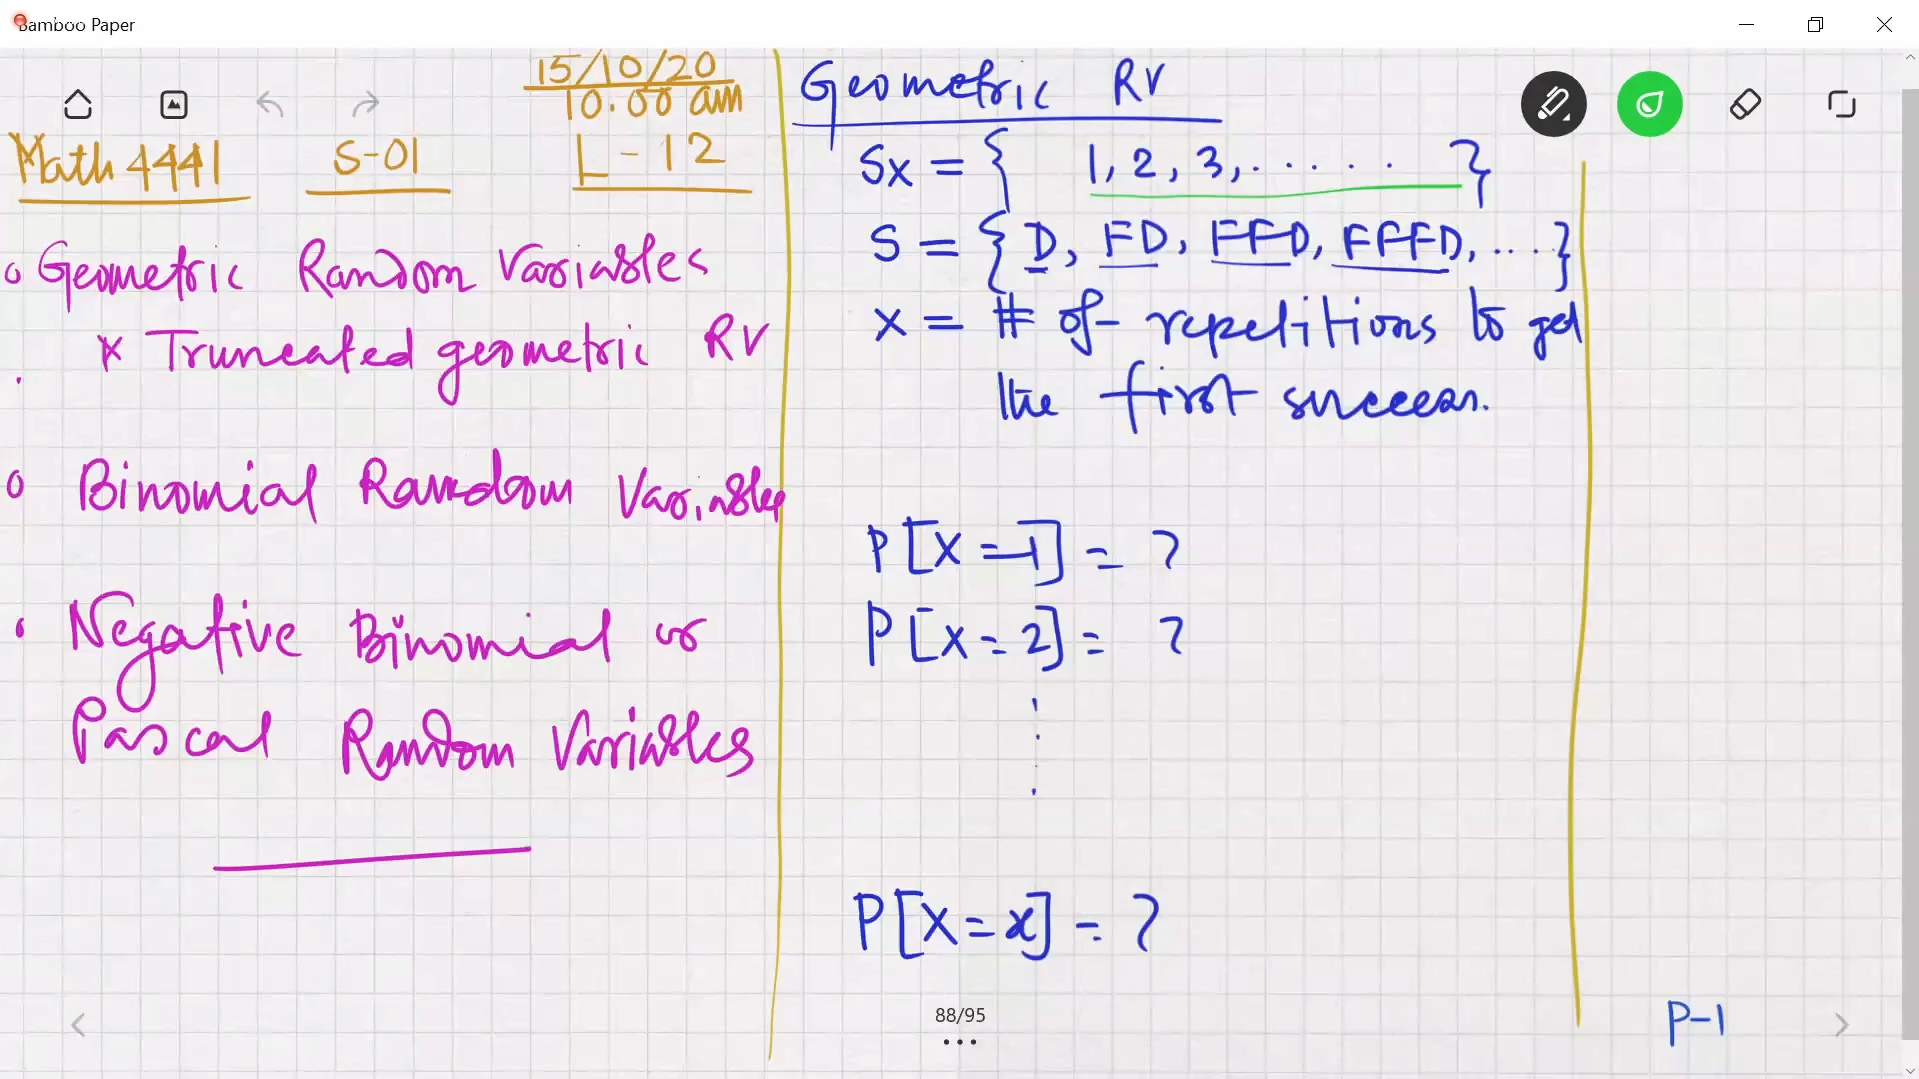 Bamboo Paper
15/10/20
10.00 am
Math 4441 S-01 L-12
Geometric Random Variables
x Truncated geometric RV
Binomial Random Variables
Negative Binomial or
Pascal Random Variables
Geometric RV
Sx = { 1, 2, 3, ..... }
S = { D, FD, FFD, FFFD, ...}
X = # of repetitions to get
the first success.
P[X = 1] = ?
P[X = 2] = ?
P[X = x] = ?
88/95
P-1